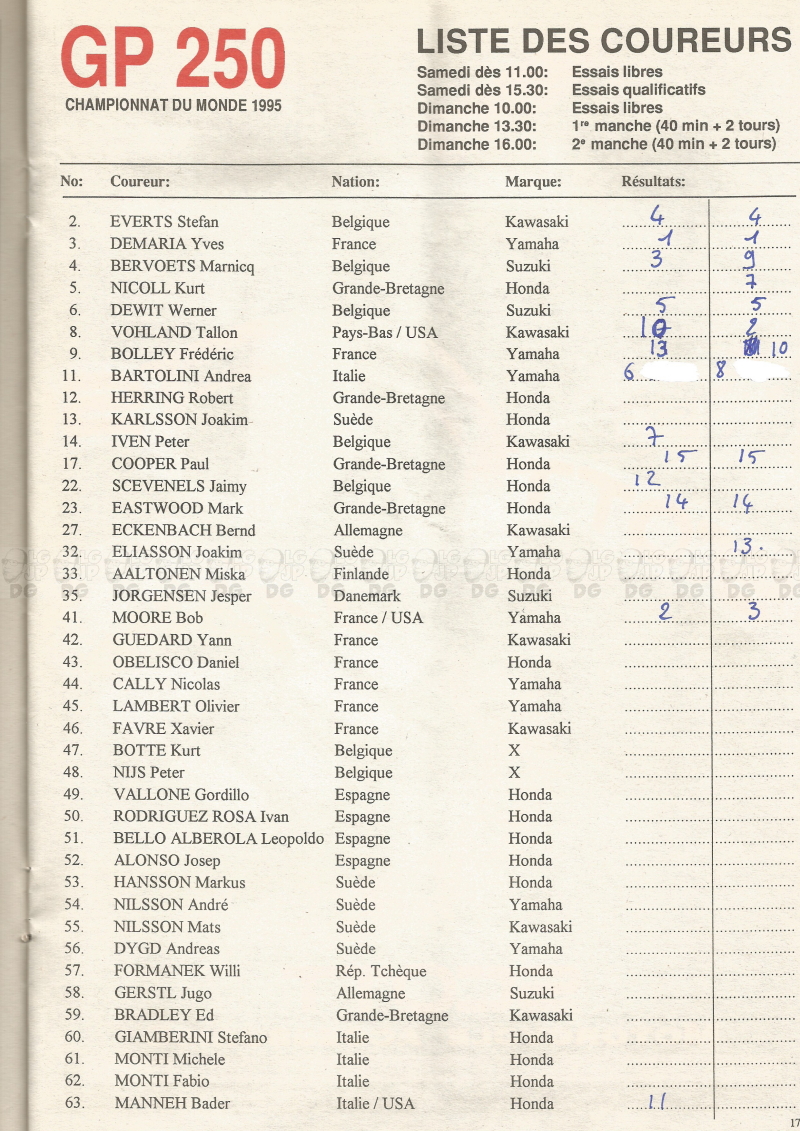 GP 250
CHAMPIONNAT DU MONDE 1995
LISTE DES COUREURS
Samedi dès 11.00: Essais libres
Samedi dès 15.30: Essais qualificatifs
Dimanche 10.00: Essais libres
Dimanche 13.30: 1re manche (40 min + 2 tours)
Dimanche 16.00: 2e manche (40 min + 2 tours)
No: Coureur: Nation: Marque: Résultats:
2. EVERTS Stefan Belgique Kawasaki 4 4
3. DEMARIA Yves France Yamaha 1 1
4. BERVOETS Marnicq Belgique Suzuki 3 9
5. NICOLL Kurt Grande-Bretagne Honda 7
6. DEWIT Werner Belgique Suzuki 5 5
8. VOHLAND Tallon Pays-Bas / USA Kawasaki 10 2
9. BOLLEY Frédéric France Yamaha 13 10
11. BARTOLINI Andrea Italie Yamaha 6 8
12. HERRING Robert Grande-Bretagne Honda
13. KARLSSON Joakim Suède Honda
14. IVEN Peter Belgique Kawasaki 7
17. COOPER Paul Grande-Bretagne Honda 15 15
22. SCEVENELS Jaimy Belgique Honda 12
23. EASTWOOD Mark Grande-Bretagne Honda 14 14
27. ECKENBACH Bernd Allemagne Kawasaki
32. ELIASSON Joakim Suède Yamaha 13.
33. AALTONEN Miska Finlande Honda
35. JORGENSEN Jesper Danemark Suzuki
41. MOORE Bob France / USA Yamaha 2 3
42. GUEDARD Yann France Kawasaki
43. OBELISCO Daniel France Honda
44. CALLY Nicolas France Yamaha
45. LAMBERT Olivier France Yamaha
46. FAVRE Xavier France Kawasaki
47. BOTTE Kurt Belgique X
48. NIJS Peter Belgique X
49. VALLONE Gordillo Espagne Honda
50. RODRIGUEZ ROSA Ivan Espagne Honda
51. BELLO ALBEROLA Leopoldo Espagne Honda
52. ALONSO Josep Espagne Honda
53. HANSSON Markus Suède Honda
54. NILSSON André Suède Yamaha
55. NILSSON Mats Suède Kawasaki
56. DYGD Andreas Suède Yamaha
57. FORMANEK Willi Rép. Tchèque Honda
58. GERSTL Jugo Allemagne Suzuki
59. BRADLEY Ed Grande-Bretagne Kawasaki
60. GIAMBERINI Stefano Italie Honda
61. MONTI Michele Italie Honda
62. MONTI Fabio Italie Honda
63. MANNEH Bader Italie / USA Honda 11
17